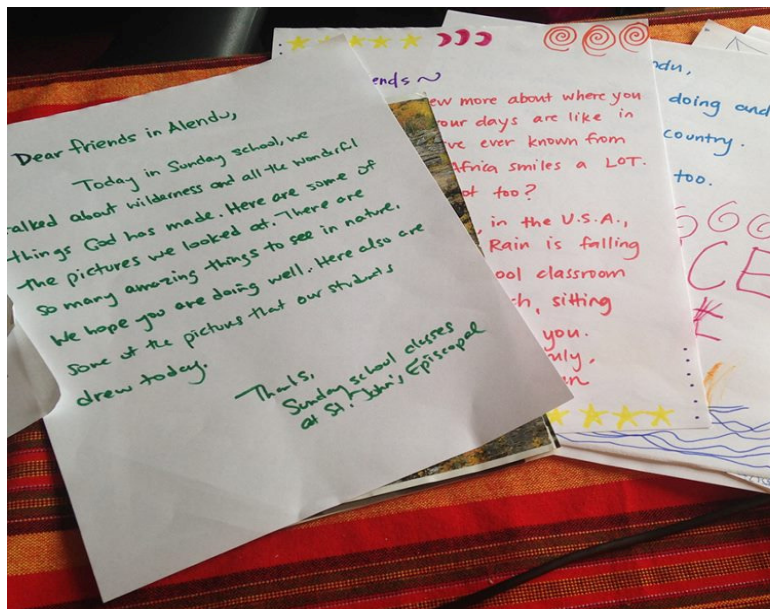 Dear friends in Alendu,
Today in Sunday school, we
talked about wilderness and all the wonderful
things God has made. Here are some of
the pictures we looked at. There are
so many amazing things to see in nature.
We hope you are doing well. Here also are
some of the pictures that our students
drew today.
Thanks,
Sunday school classes
at St. John's, Episcopal
ends ~
ew more about where you
our days are like in
've ever known from
Africa smiles a LOT.
ot too?
in the U.S.A.,
Rain is falling
ool classroom
ch, sitting
you.
uly,
en
ndu,
doing and
country.
too.
CE